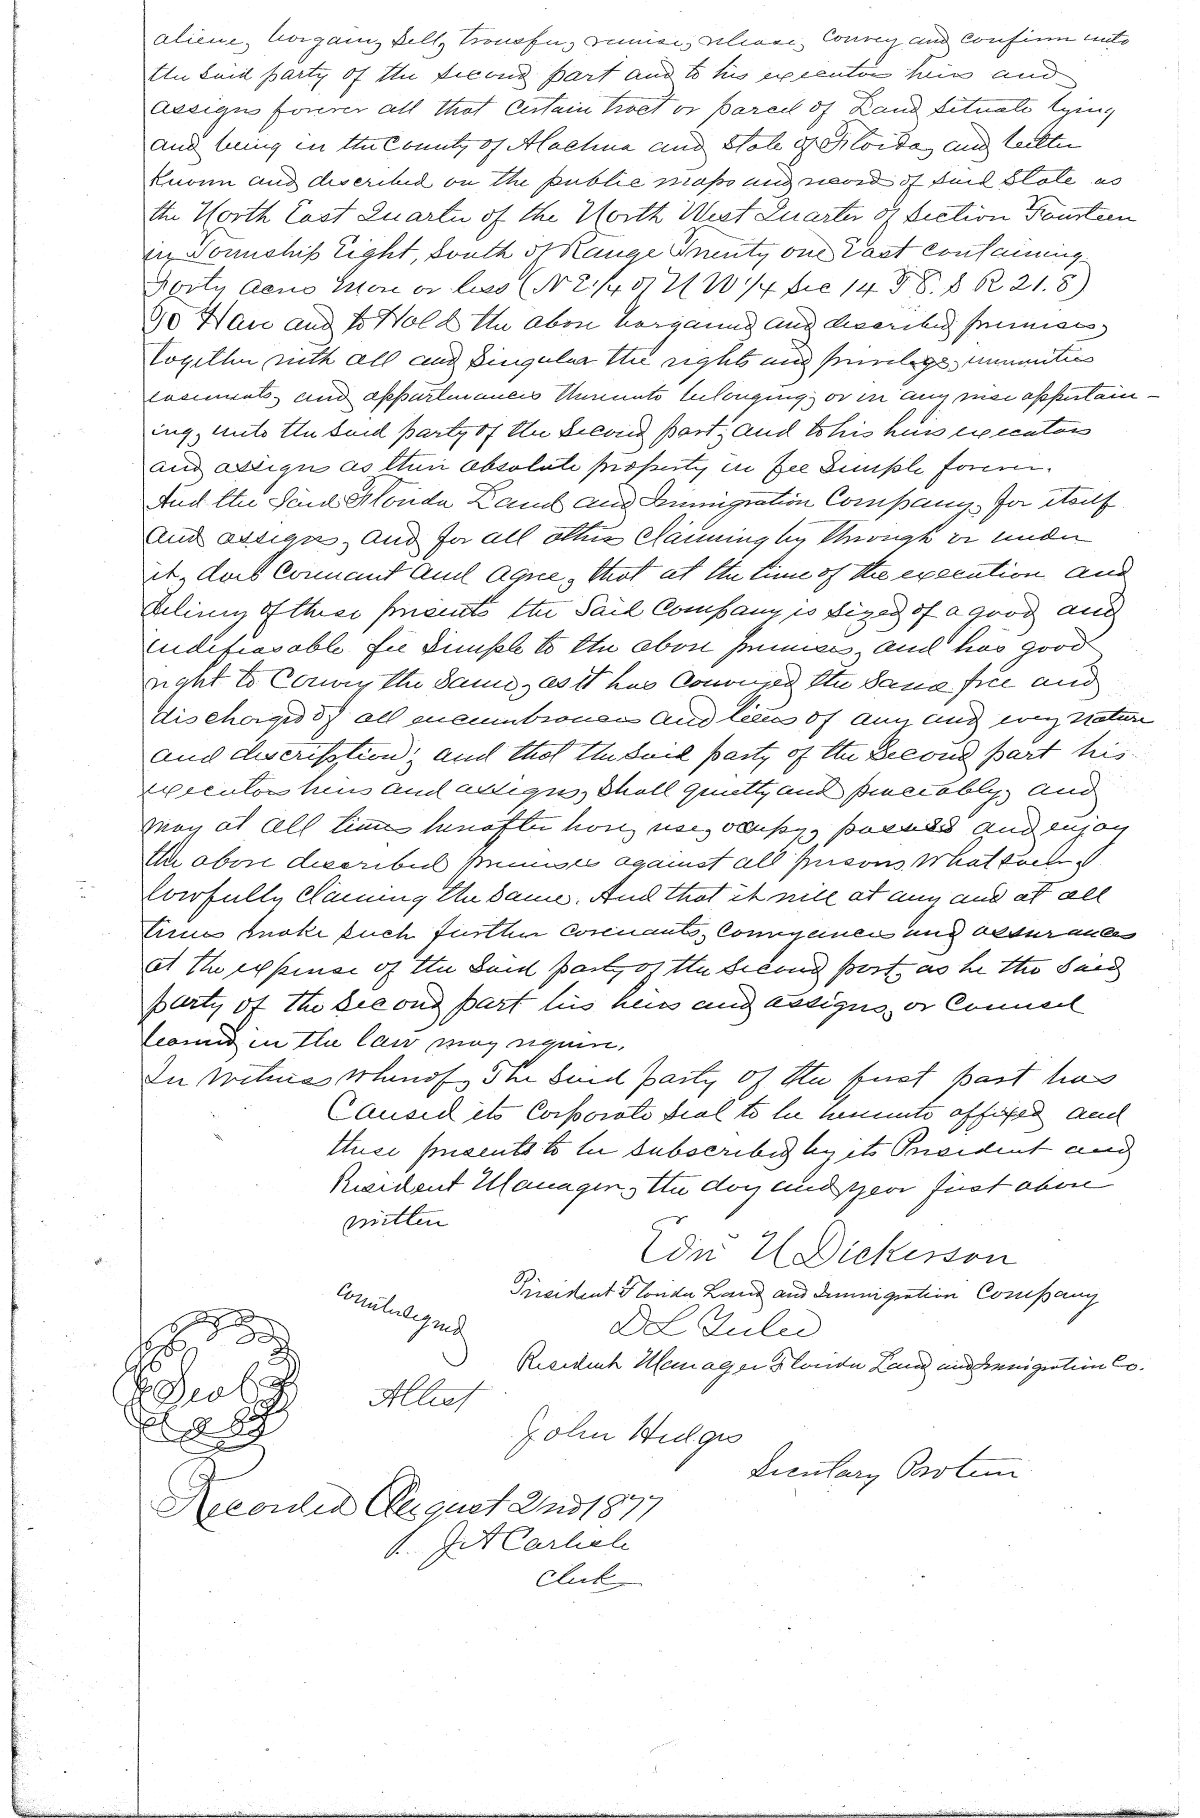 aliene, bargain, sell, transfer, remise, release, convey and confirm unto
the said party of the second part and to his executors heirs and
assigns forever all that certain tract or parcel of Land situate lying
and being in the County of Alachua and State of Florida, and better
known and described on the public maps and record of said State as
the North East Quarter of the North West Quarter of Section Fourteen
in Township Eight, South of Range Twenty one East containing
Forty acres more or less (N E 1/4 of N W 1/4 Sec 14 T 8. S R 21. E)
To Have and to Hold the above bargained and described premises,
together with all and singular the rights and privilege, immunities
easements, and appurtenances thereunto belonging, or in any wise appertain-
ing, unto the said party of the second part, and to his heirs executors
and assigns as their absolute property in fee simple forever.
And the said Florida Land and Immigration Company, for itself
and assigns, and for all others claiming by through or under
it, does covenant and agree, that at the time of the execution and
delivery of these presents the said Company is sized of a good and
indefeasable fee simple to the above premises, and has good
right to convey the same, as it has conveyed the same free and
discharged of all encumbrances and liens of any and every nature
and description; and that the said party of the second part his
executors heirs and assigns, shall quietly and peaceably, and
may at all times hereafter have, use, occupy, possess and enjoy
the above described premises against all persons whatsoever
lawfully claiming the same. And that it will at any and at all
times make such further covenants, conveyances and assurances
at the expense of the said party of the second part, as he the said
party of the second part his heirs and assigns, or Counsel
learned in the law may require.
In Witness Whereof, The said party of the first part has
Caused its Corporate Seal to be hereunto affixed and
these presents to be subscribed by its President and
Resident Manager, the day and year first above
written
Edw N Dickerson
President Florida Land and Immigration Company
D L Yulee
Resident Manager Florida Land and Immigration Co.
Countersigned
Seal
Attest
John Hedges
Secretary Protem
Recorded August 2nd 1877
J A Carlisle
Clerk